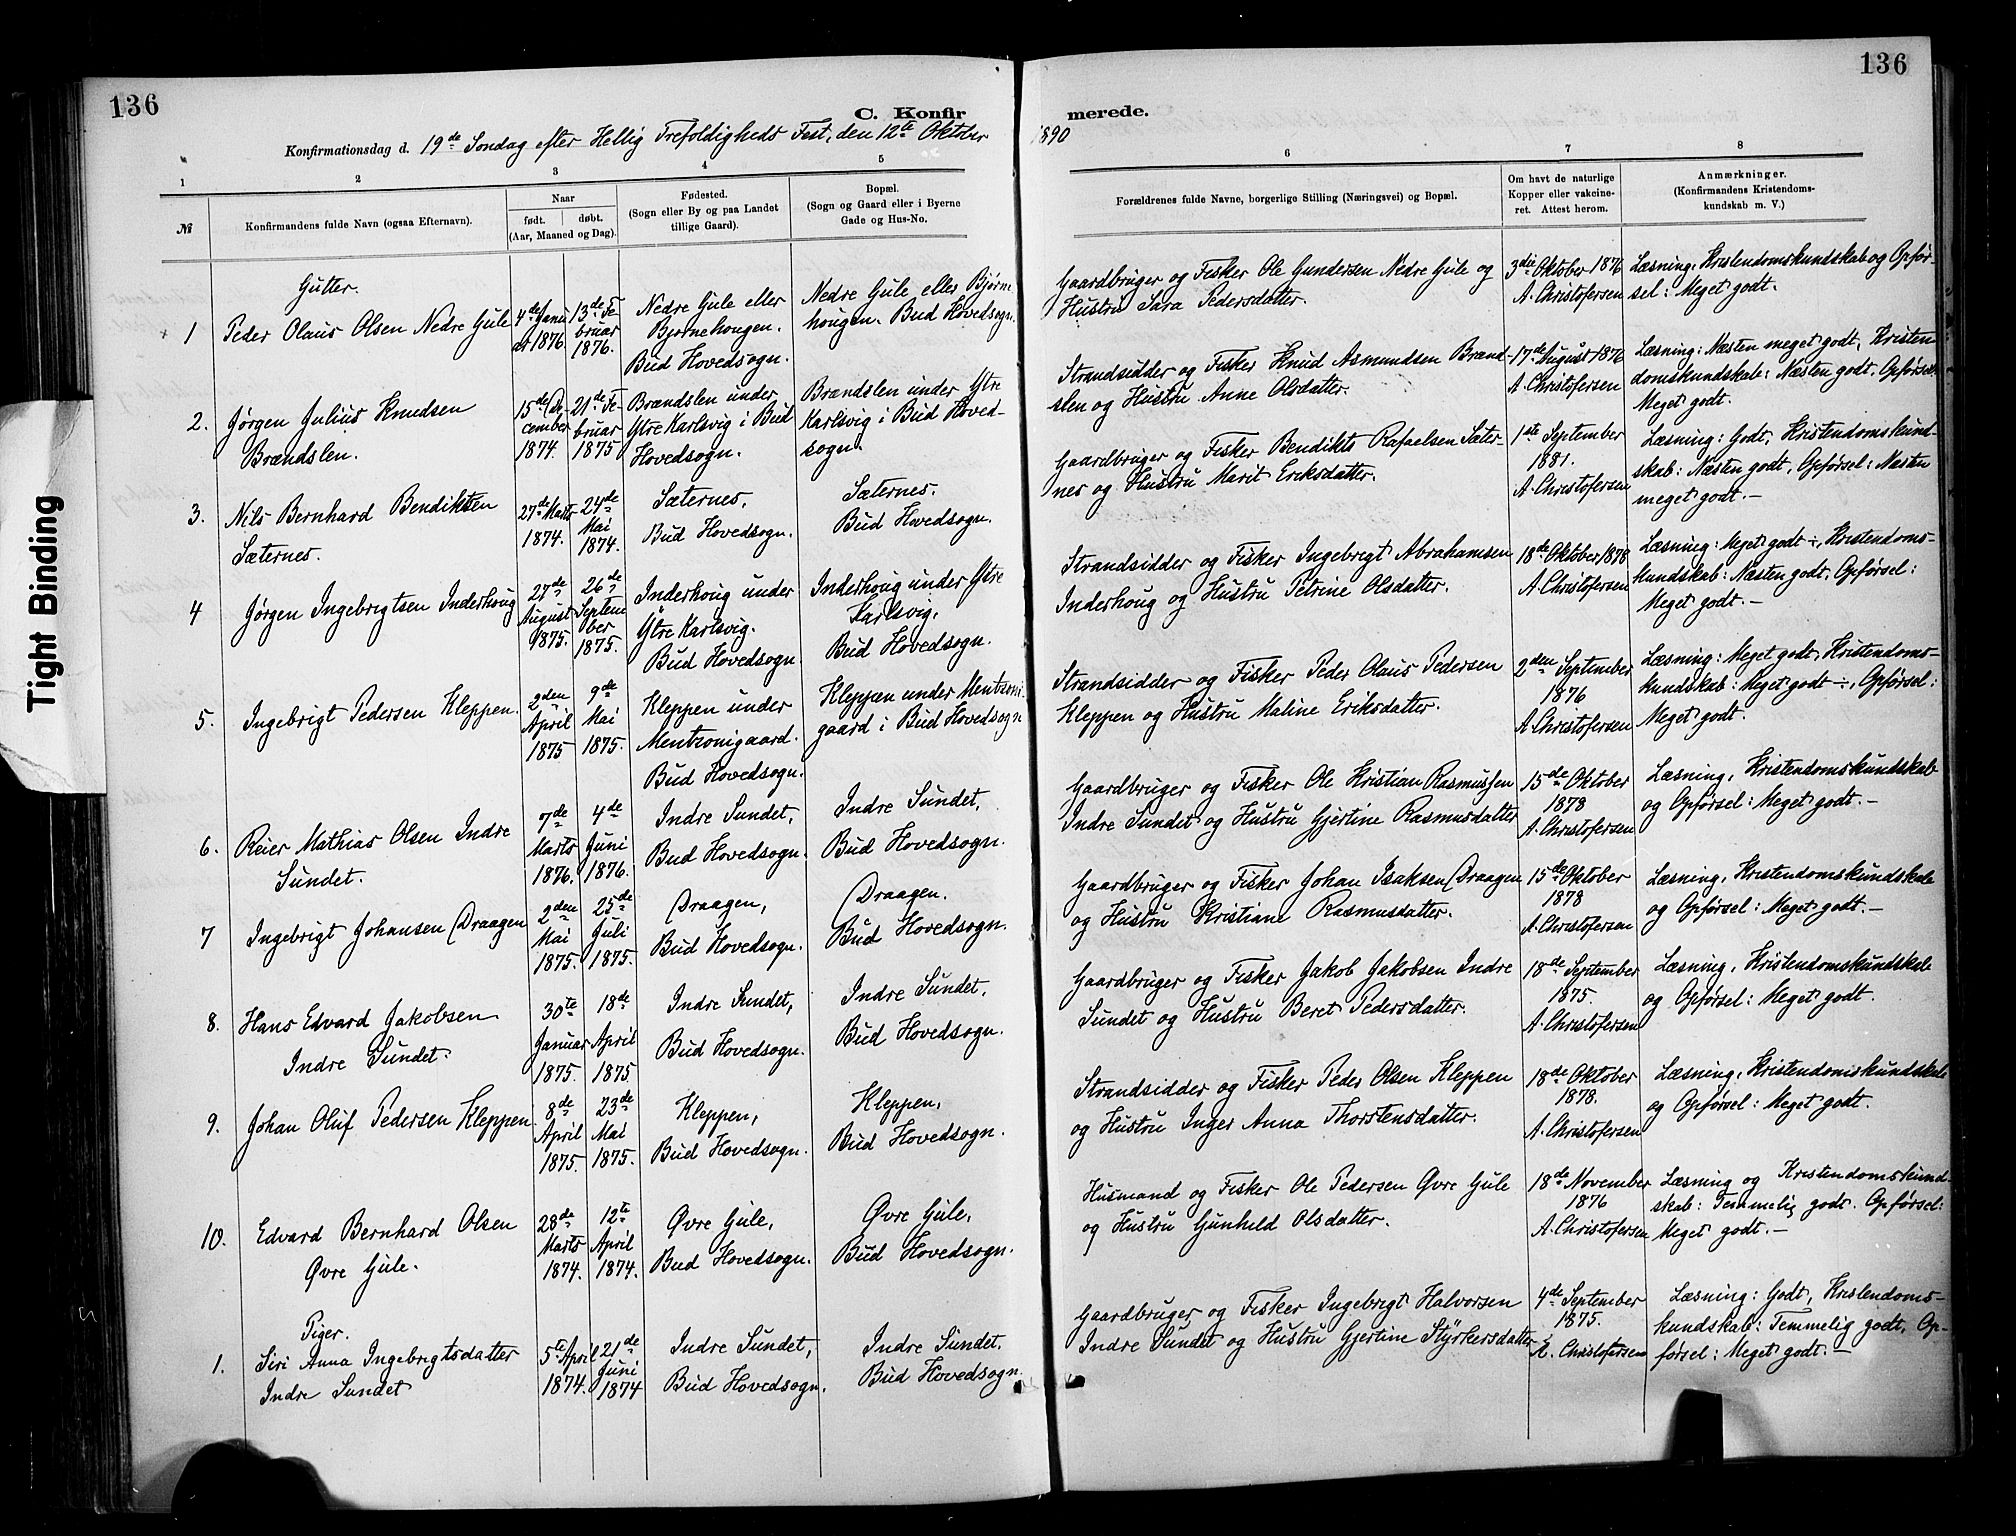 136
136
C. Konfir
merede.
Konfirmationsdag d. 19de Søndag efter Hellig Trefoldigheds Fest, den 12te Oktober
1890
1
2
3
4
5
6
7
8
№
Konfirmandens fulde Navn (ogsaa Efternavn).
Naar
født.
døbt.
(Aar, Maaned og Dag).
Fødested.
(Sogn eller By og paa Landet
tillige Gaard).
Bopæl.
(Sogn og Gaard eller i Byerne
Gade og Hus-No.
Forældrenes fulde Navne, borgerlige Stilling (Næringsvei) og Bopæl.
Om havt de naturlige
Kopper eller vakcine-
ret. Attest herom.
Anmærkninger.
(Konfirmandens Kristendoms-
kundskab m. V.)
Gutter.
1
Peder Olaus Olsen Nedre Gule
4de Janu
ar 1876
13de Fe-
bruar
1876.
Nedre Gule eller
Bjørnehougen.
Bud Hovedsogn.
Nedre Gule eller Bjørne
hougen. Bud Hovedsogn.
Gaardbruger og Fisker Ole Gundersen Nedre Gule og
Hustru Sara Pedersdatter.
3die Oktober 1876
A. Christofersen
Læsning, Kristendomskundskab og Opfør-
sel: Meget godt.
2.
Jørgen Julius Knudsen
Brændslen.
15de De-
cember
1874.
21de Fe-
bruar
1875
Brændslen under
Ytre Karlsvig i Bud
Hovedsogn.
Brændslen under Ytre
Karlsvig i Bud Hoved-
sogn.
Strandsidder og Fisker Knud Asmundsen Brænd-
slen og Hustru Anne Olsdatter.
17de August 1876
A. Christofersen
Læsning: Næsten meget godt, Kristen
domskundskab: Næsten godt, Opførsel:
Meget godt.
3.
Nils Bernhard Bendiktsen
Sæternes.
27de Marts
1874.
24de
Mai
1874.
Sæternes,
Bud Hovedsogn.
Sæternes.
Bud Hovedsogn.
Gaardbruger og Fisker Bendikts Rafaelsen Sæter-
nes og Hustru Marit Eriksdatter.
1ste September
1881.
A. Christofersen
Læsning: Godt, Kristendomskund-
skab: Næsten godt, Opførsel: Næsten
meget godt. –
4
Jørgen Ingebrigtsen Inderhoug
27de
August
1875.
26de
Septem
ber
1875.
Inderhoug under
Ytre Karlsvig.
Bud Hovedsogn
Inderhoug under Ytre
Karlsvig,
Bud Hovedsogn.
Strandsidder og Fisker Ingebrigt Abrahamsen
Inderhoug og Hustru Petrine Olsdatter.
18de Oktober 1878
A. Christofersen
Læsning: Meget godt ÷, Kristendoms-
kundskab: Næsten godt, Opførsel:
Meget godt. –
5.
Ingebrigt Pedersen Kleppen.
2den
April
1875
9de
Mai
1875.
Kleppen under
Mentzonigaard.
Bud Hovedsogn.
Kleppen under Mentzoni-
gaard i Bud Hovedsogn
Strandsidder og Fisker Peder Olaus Pedersen
Kleppen og Hustru Maline Eriksdatter.
2den September
1876
A. Christofersen
Læsning: Meget godt, Kristendoms-
kundskab: Meget godt ÷, Opførsel:
Meget godt.
6.
Reier Mathias Olsen Indre
Sundet.
7de
Marts
1876.
4de
Juni
1876.
Indre Sundet,
Bud Hovedsogn.
Indre Sundet,
Bud Hovedsogn.
Gaardbruger og Fisker Ole Kristian Rasmussen
Indre Sundet og Hustru Gjertine Rasmusdatter
15de Oktober
1878
A. Christofersen
Læsning, Kristendomskundskab
og Opførsel: Meget godt. –
7
Ingebrigt Johansen Draagen
2den
Mai
1875.
25de
Juli
1875.
Draagen,
Bud Hovedsogn.
Draagen.
Bud Hovedsogn.
Gaardbruger og Fisker Johan Isaksen Draagen
og Hustru Kristiane Rasmusdatter.
15de Oktober
1878
A. Christofersen
Læsning, Kristendomskundskab
og Opførsel: Meget godt. –
8.
Hans Edvard Jakobsen
Indre Sundet.
30te
Januar
1875.
18de
April
1875.
Indre Sundet,
Bud Hovedsogn.
Indre Sundet,
Bud Hovedsogn.
Gaardbruger og Fisker Jakob Jakobsen Indre
Sundet og Hustru Beret Pedersdatter.
18de September
1875.
A. Christofersen
Læsning, Kristendomskundskab
og Opførsel: Meget godt.
9.
Johan Oluf Pedersen Kleppen
8de
April
1875.
23de
Mai
1875.
Kleppen,
Bud Hovedsogn.
Kleppen,
Bud Hovedsogn.
Strandsidder og Fisker Peder Olsen Kleppen
og Hustru Inger Anna Thorstensdatter.
18de Oktober
1878.
A. Christofersen
Læsning, Kristendomskundskab
og Opførsel: Meget godt.
10.
Edvard Bernhard Olsen
Øvre Gule.
28de
Marts
1874.
12te
April
1874.
Øvre Gule,
Bud Hovedsogn.
Øvre Gule,
Bud Hovedsogn.
Husmand og Fisker Ole Pedersen Øvre Gule
og Hustru Gunhild Olsdatter.
18de November
1876
A. Christofersen
Læsning og Kristendomskund-
skab: Temmelig godt. Opførsel:
Meget godt. –
Piger.
1.
Siri Anna Ingebrigtsdatter
Indre Sundet
5te April
1874.
21de
Juni
1874
Indre Sundet,
Bud Hovedsogn.
Indre Sundet.
Bud Hovedsogn.
Gaardbruger og Fisker Ingebrigt Halvorsen
Indre Sundet og Hustru Gjertine Styrkersdatter
4de September
1875.
A. Christofersen
Læsning: Godt, Kristendoms-
kundskab: Temmelig godt, Op-
førsel: Meget godt. –
Tight Binding